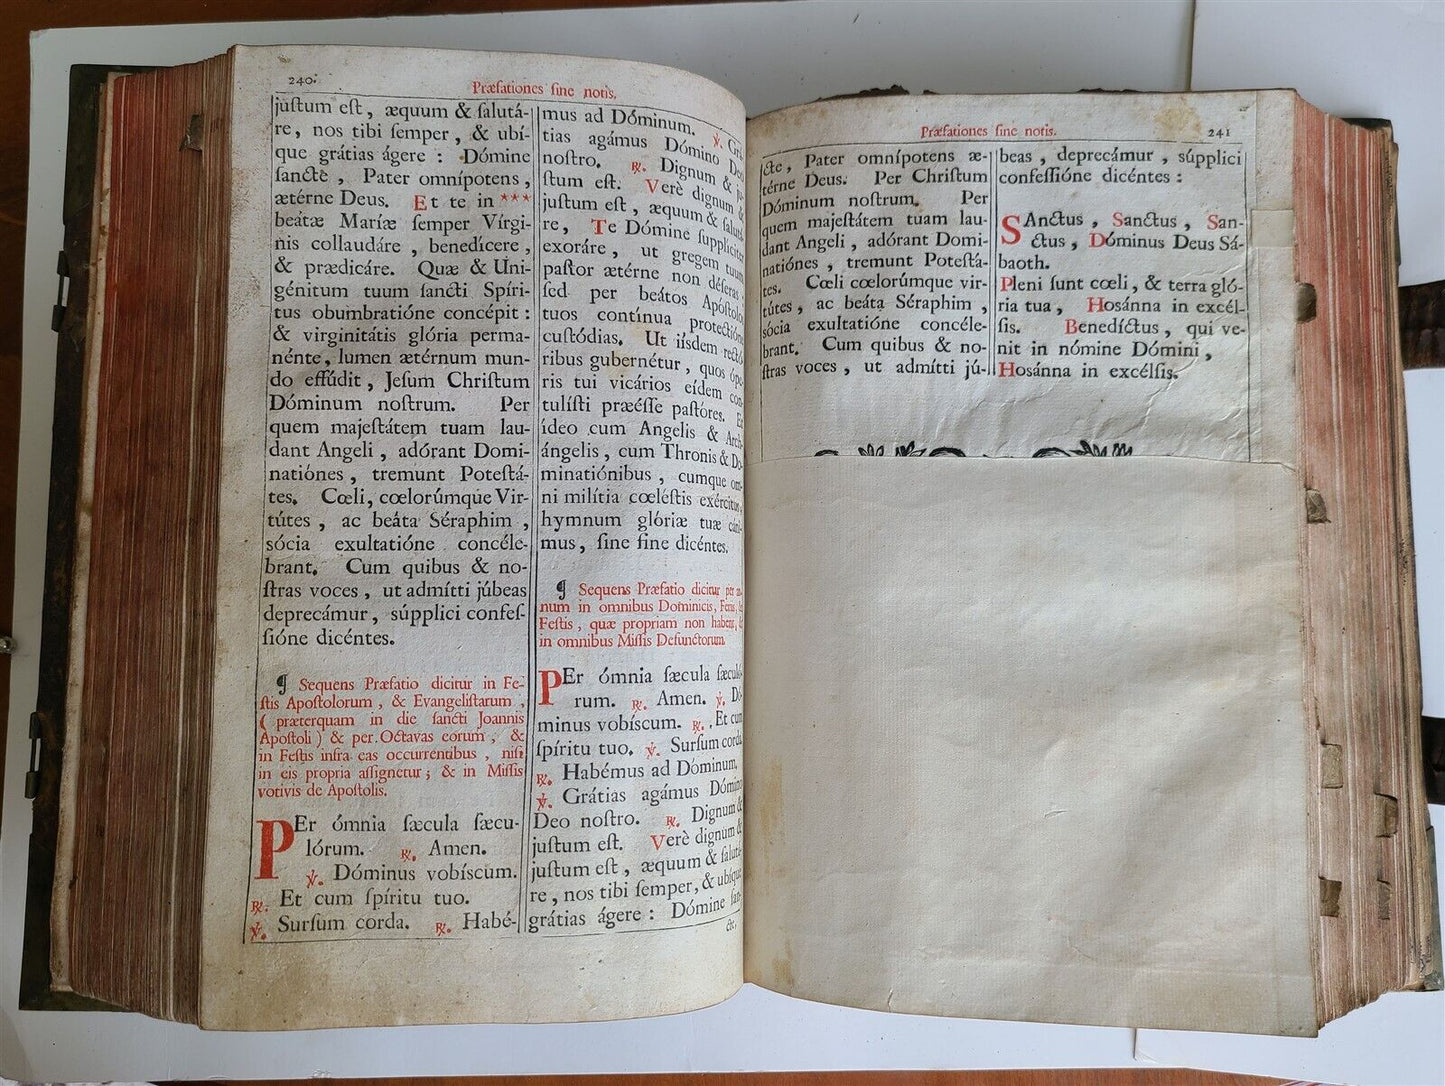 240.
Præfationes ſine notis.
juſtum eſt, æquum & ſalutá-
re, nos tibi ſemper, & ubí-
que grátias ágere : Dómine
ſancte, Pater omnípotens,
ætérne Deus. Et te in ***
beátæ Maríæ ſemper Vírgi-
nis collaudáre, benedícere,
& prædicáre. Quæ & Uni-
génitum tuum ſancti Spíri-
tus obumbratióne concépit :
& virginitátis glória perma-
nénte, lumen ætérnum mun-
do effúdit, Jeſum Chriſtum
Dóminum noſtrum. Per
quem majeſtátem tuam lau-
dant Angeli, adórant Domi-
natiónes, tremunt Poteſtá-
tes. Cœli, cœlorúmque Vir-
tútes, ac beáta Séraphim,
sócia exultatióne concéle-
brant. Cum quibus & no-
ſtras voces, ut admítti júbeas
deprecámur, súpplici confeſ-
ſióne dicéntes.
¶ Sequens Præfatio dicitur in Fe-
ſtis Apoſtolorum, & Evangeliſtarum,
( præterquam in die ſancti Joannis
Apoſtoli ) & per Octavas eorum, &
in Feſtis infra eas occurrentibus, niſi
in eis propria aſſignetur; & in Miſſis
votivis de Apoſtolis.
PEr ómnia ſæcula ſæcu-
lórum. ℟. Amen.
℣. Dóminus vobíscum.
℟. Et cum ſpíritu tuo.
℣. Surſum corda. ℟. Habé-
mus ad Dóminum. ℣. Grá-
tias agámus Dómino Deo
noſtro. ℟. Dignum & ju-
ſtum eſt. Verè dignum &
juſtum eſt, æquum & ſalutá-
re, Te Dómine ſupplíciter
exoráre, ut gregem tuum
paſtor ætérne non déſeras :
ſed per beátos Apóſtolos
tuos contínua protectióne
cuſtódias. Ut iíſdem rectó-
ribus gubernétur, quos ópe-
ris tui vicários eídem con-
tulíſti præéſſe paſtóres. Et
ídeo cum Angelis & Arch-
ángelis, cum Thronis & Do-
minatiónibus, cumque om-
ni milítia cœléſtis exércitus,
hymnum glóriæ tuæ cáni-
mus, ſine fine dicéntes.
¶ Sequens Præfatio dicitur per an-
num in omnibus Dominicis, Feriis, &
Feſtis, quæ propriam non habent, &
in omnibus Miſſis Defunctorum.
PEr ómnia ſæcula ſæculó-
rum. ℟. Amen. ℣. Dó-
minus vobíscum. ℟. Et cum
ſpíritu tuo. ℣. Surſum corda.
℟. Habémus ad Dóminum.
℣. Grátias agámus Dómino
Deo noſtro. ℟. Dignum &
juſtum eſt. Verè dignum &
juſtum eſt, æquum & ſalutá-
re, nos tibi ſemper, & ubíque
grátias ágere : Dómine ſan-
cte,
Præfationes ſine notis.
241
cte, Pater omnípotens æ-
térne Deus. Per Chriſtum
Dóminum noſtrum. Per
quem majeſtátem tuam lau-
dant Angeli, adórant Domi-
natiónes, tremunt Poteſtá-
tes. Cœli cœlorúmque vir-
tútes, ac beáta Séraphim,
sócia exultatióne concéle-
brant. Cum quibus & no-
ſtras voces, ut admítti jú-
beas, deprecámur, súpplici
confeſſióne dicéntes :
SAnctus, Sanctus, San-
ctus, Dóminus Deus Sá-
baoth.
Pleni ſunt cœli, & terra gló-
ria tua, Hosánna in excél-
ſis. Benedíctus, qui ve-
nit in nómine Dómini,
Hosánna in excélſis.